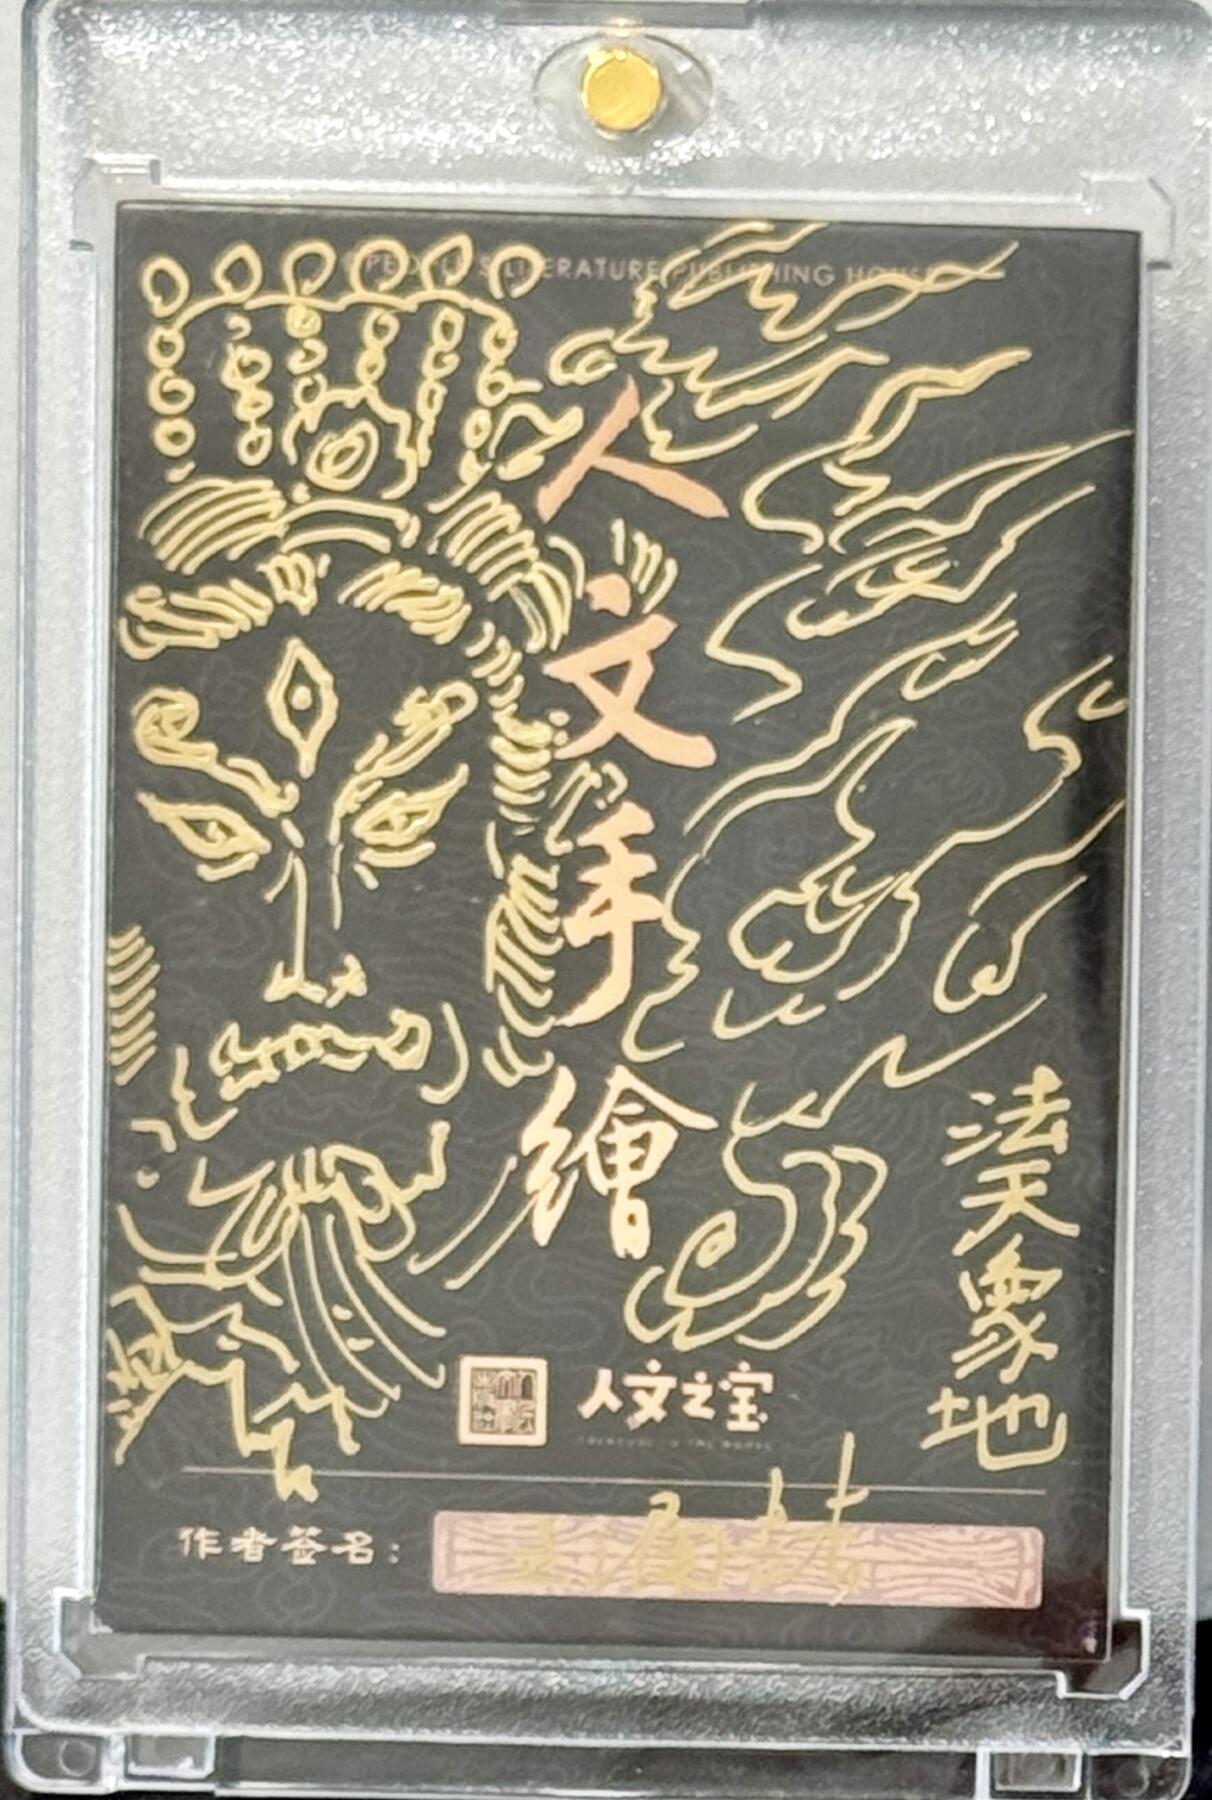 PEOPLE'S LITERATURE PUBLISHING HOUSE
人文手繪
法天象地
人文之宝
作者签名：